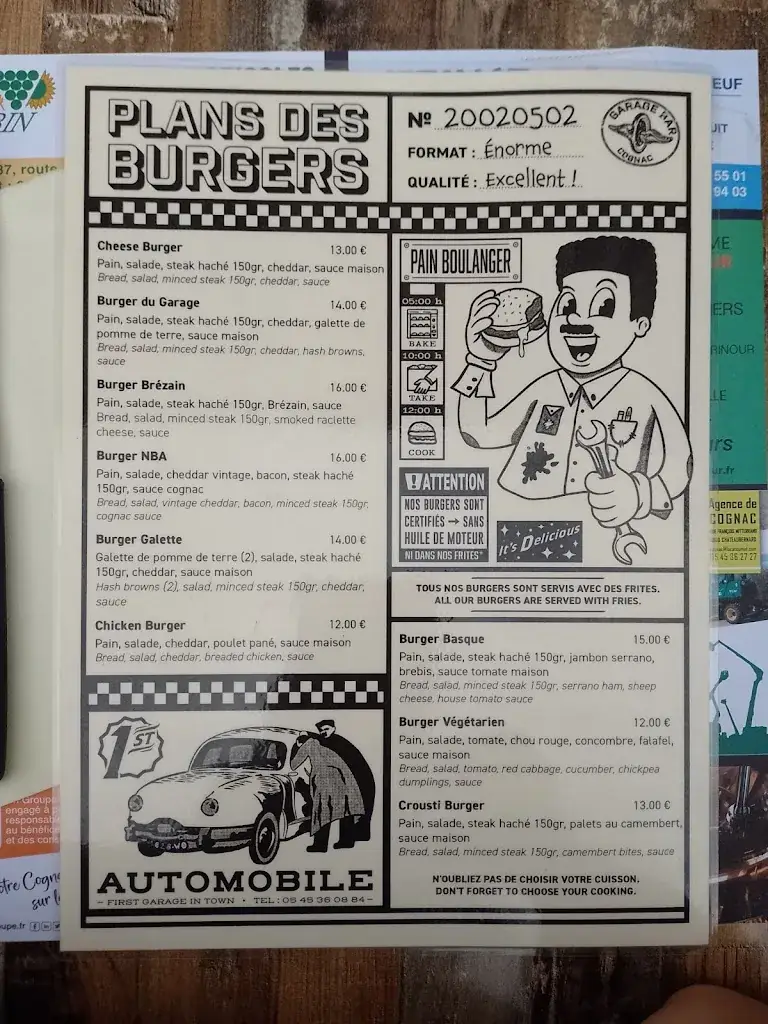 PLANS DES
BURGERS
Nº 20020502
FORMAT : Énorme
QUALITÉ : Excellent !
GARAGE BAR
COGNAC
Cheese Burger 13.00 €
Pain, salade, steak haché 150gr, cheddar, sauce maison
Bread, salad, minced steak 150gr, cheddar, sauce
Burger du Garage 14.00 €
Pain, salade, steak haché 150gr, cheddar, galette de
pomme de terre, sauce maison
Bread, salad, minced steak 150gr, cheddar, hash browns,
sauce
Burger Brézain 16.00 €
Pain, salade, steak haché 150gr, Brézain, sauce
Bread, salad, minced steak 150gr, smoked raclette
cheese, sauce
Burger NBA 16.00 €
Pain, salade, cheddar vintage, bacon, steak haché
150gr, sauce cognac
Bread, salad, vintage cheddar, bacon, minced steak 150gr,
cognac sauce
Burger Galette 14.00 €
Galette de pomme de terre (2), salade, steak haché
150gr, cheddar, sauce maison
Hash browns (2), salad, minced steak 150gr, cheddar,
sauce
Chicken Burger 12.00 €
Pain, salade, cheddar, poulet pané, sauce maison
Bread, salad, cheddar, breaded chicken, sauce
1ST
AUTOMOBILE
– FIRST GARAGE IN TOWN • TEL : 05 45 36 08 84 –
PAIN BOULANGER
05:00 h
BAKE
10:00 h
TAKE
12:00 h
COOK
! ATTENTION
NOS BURGERS SONT
CERTIFIÉS → SANS
HUILE DE MOTEUR
NI DANS NOS FRITES*
It's Delicious
TOUS NOS BURGERS SONT SERVIS AVEC DES FRITES.
ALL OUR BURGERS ARE SERVED WITH FRIES.
Burger Basque 15.00 €
Pain, salade, steak haché 150gr, jambon serrano,
brebis, sauce tomate maison
Bread, salad, minced steak 150gr, serrano ham, sheep
cheese, house tomato sauce
Burger Végétarien 12.00 €
Pain, salade, tomate, chou rouge, concombre, falafel,
sauce maison
Bread, salad, tomato, red cabbage, cucumber, chickpea
dumplings, sauce
Crousti Burger 13.00 €
Pain, salade, steak haché 150gr, palets au camembert,
sauce maison
Bread, salad, minced steak 150gr, camembert bites, sauce
N'OUBLIEZ PAS DE CHOISIR VOTRE CUISSON.
DON'T FORGET TO CHOOSE YOUR COOKING.
37, route
EUF
55 01
94 03
Agence de
COGNAC
05 45 06 27 27
Groupe
engagé à
responsable
au bénéfice
et des con
otre Cogn
sur l
oupe.fr